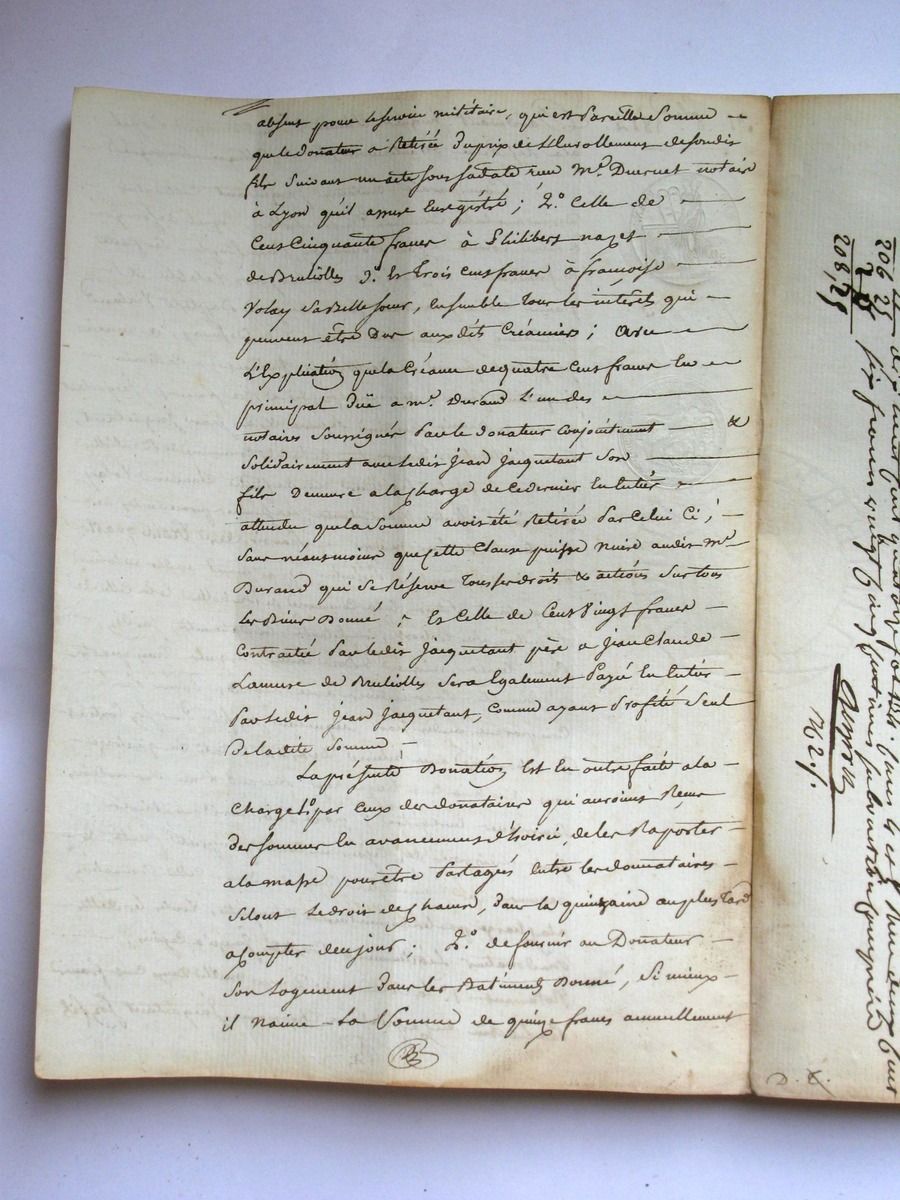 absent pour le service militaire, qui est Pareille Somme
que le donateur a Retirée du prix de L'Enrollement de son dit
fils Suivant un acte sous sa date reçu Mr. Ducruet notaire
à Lyon qu'il assure Enregistré ; 2.o Celle de
Cent Cinquante francs à Philibert nazet
de Brullioles 3.o Et Trois Cent francs à françoise
Volay Sa Belle Sœur, Ensemble Tous les intérêts qui
peuvent être Dus aux dits Créanciers ; avec
L'Explication que la Créance de quatre Cent francs En
principal Düe a Mr. Durand L'un des
notaires Soussignés Par le donateur Conjointement &
Solidairement avec ledit Jean Jacquetant Son
fils Demeure a la Charge de Ce dernier En Entier
attendu que la Somme avoit été Retirée Par Celui Ci ;
Sans néansmoins que Cette Clause puisse nuire audit Mr.
Durand qui Se Réserve Tous ses droits & actions Sur Tous
Les Biens Donné ; Et Celle de Cent Vingt francs
Contractée Par ledit Jacquetant père a Jean Claude
Lamure de Brullioles Sera Egalement Payé En Entier
Par ledit Jean Jacquetant, Comme ayant Profité Seul
De la dite Somme ;
La présente Donation Est En outre faite a la
Charge 1.o par Ceux des donataires qui auroient Reçus
des Sommes En avancement d'hoirie, de les Raporter
a la masse pour être Partagées Entre les donnataires
Selont Le droit de Chacun, dans la quinzaine au plus Tard
a Compter de ce jour ; 2.o de fournir au Donateur
Son Logement dans les Batiments Donné, Si mieux
il n'aime La Somme de quinze francs annuellement
206 25
2
208,25
six francs vingt cinq centimes
762.f.
D. K.